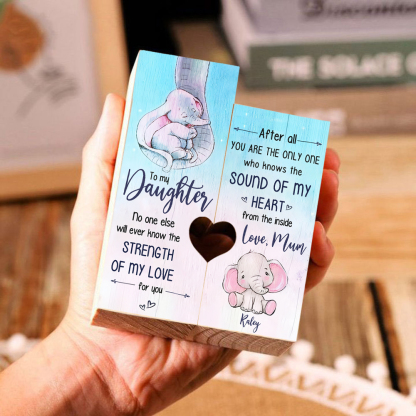 To my
Daughter
No one else
will ever know the
STRENGTH
OF MY LOVE
for you
After all
YOU ARE THE ONLY ONE
who knows the
SOUND OF MY
HEART
from the inside
Love, Mum
Raley
THE SOLACE O